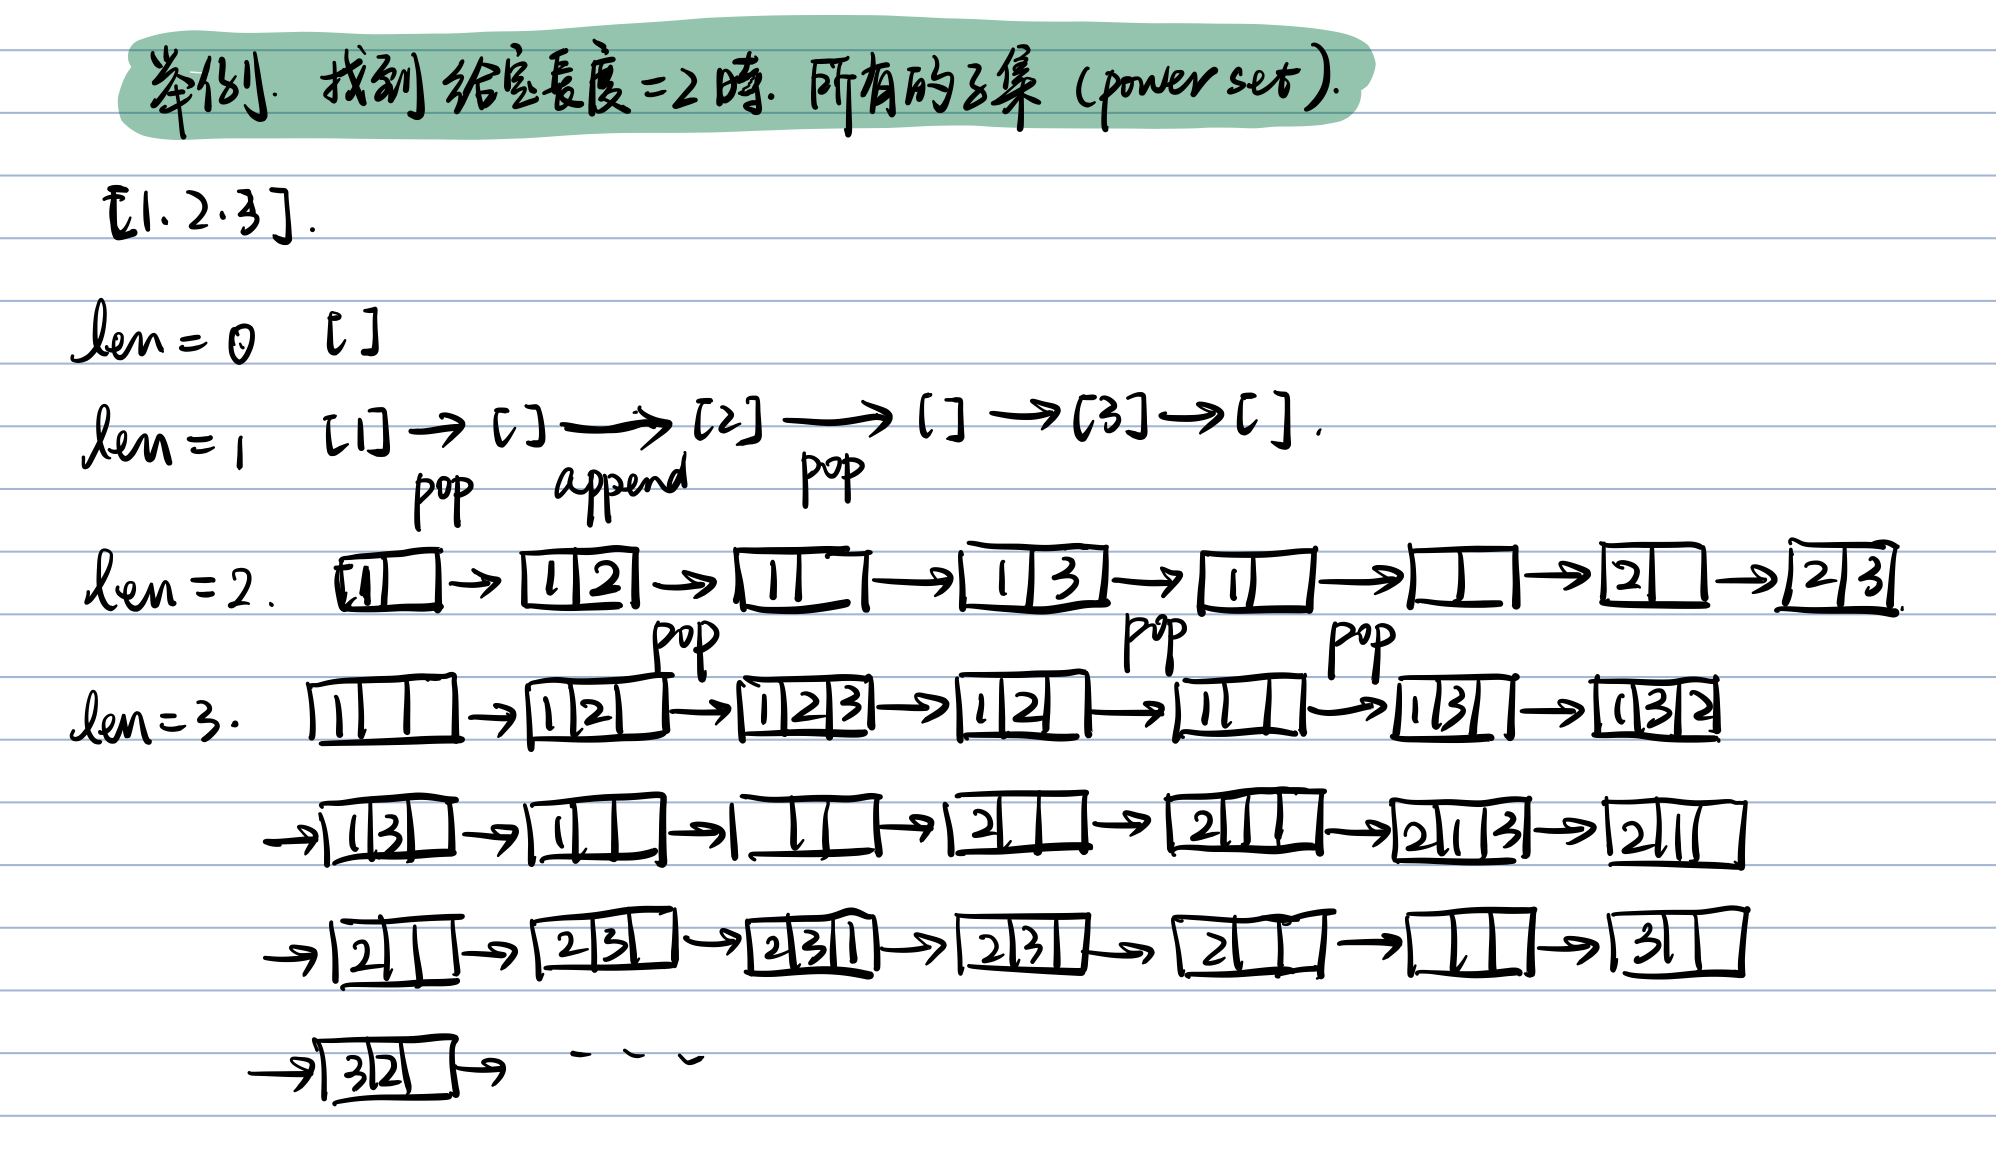 举例. 找到给定長度=2時. 所有的子集 (power set).
[1.2.3].
len=0 []
len=1 [1] → [] → [2] → [] → [3] → [].
pop append pop
len=2. 1 → 1 2 → 1 → 1 3 → 1 → → 2 → 2 3
pop pop pop
len=3. 1 → 1 2 → 1 2 3 → 1 2 → 1 → 1 3 → 1 3 2
→ 1 3 → 1 → → 2 → 2 1 → 2 1 3 → 2 1
→ 2 → 2 3 → 2 3 1 → 2 3 → 2 → → 3
→ 3 2 → - - -